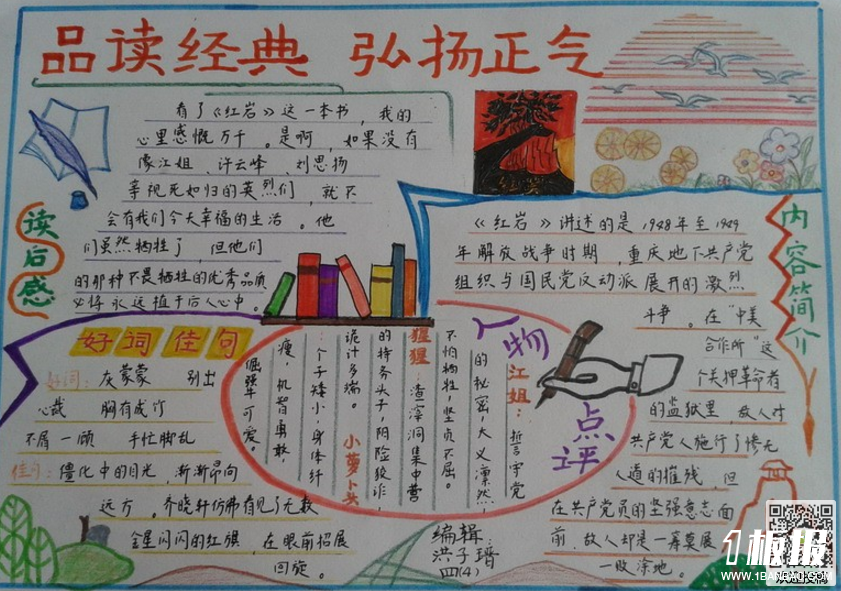 品读经典 弘扬正气
读后感
看了《红岩》这一本书，我的
心里感慨万千。是啊，如果没有
像江姐、许云峰、刘思扬
等视死如归的英烈们，就不
会有我们今天幸福的生活。他
们虽然牺牲了，但他们
的那种不畏牺牲的优秀品质
必将永远植于后人心中。
红岩
内容简介
《红岩》讲述的是1948年至1949
年解放战争时期，重庆地下共产党
组织与国民党反动派展开的激烈
斗争。在“中美
合作所”这
个关押革命者
的监狱里，敌人对
共产党人施行了惨无
人道的摧残，但
在共产党员的坚强意志面
前，敌人却是一筹莫展
一败涂地。
好词佳句
好词：灰蒙蒙 别出
心裁 胸有成竹
不屑一顾 手忙脚乱
佳句：僵化中的目光，渐渐昂向
远方。齐晓轩仿佛看见了无数
金星闪闪的红旗，在眼前招展
回旋。
人物点评
江姐：誓守党
的秘密，大义凛然，
不怕牺牲，坚贞不屈。
猩猩：渣滓洞集中营
的特务头子，阴险狡诈，
诡计多端。
小萝卜头
：个子矮小，身体纤
瘦，机智勇敢，
倔强可爱。
编辑：
洪子瑨
四(4)
1板报
WWW.1BANBAO.COM